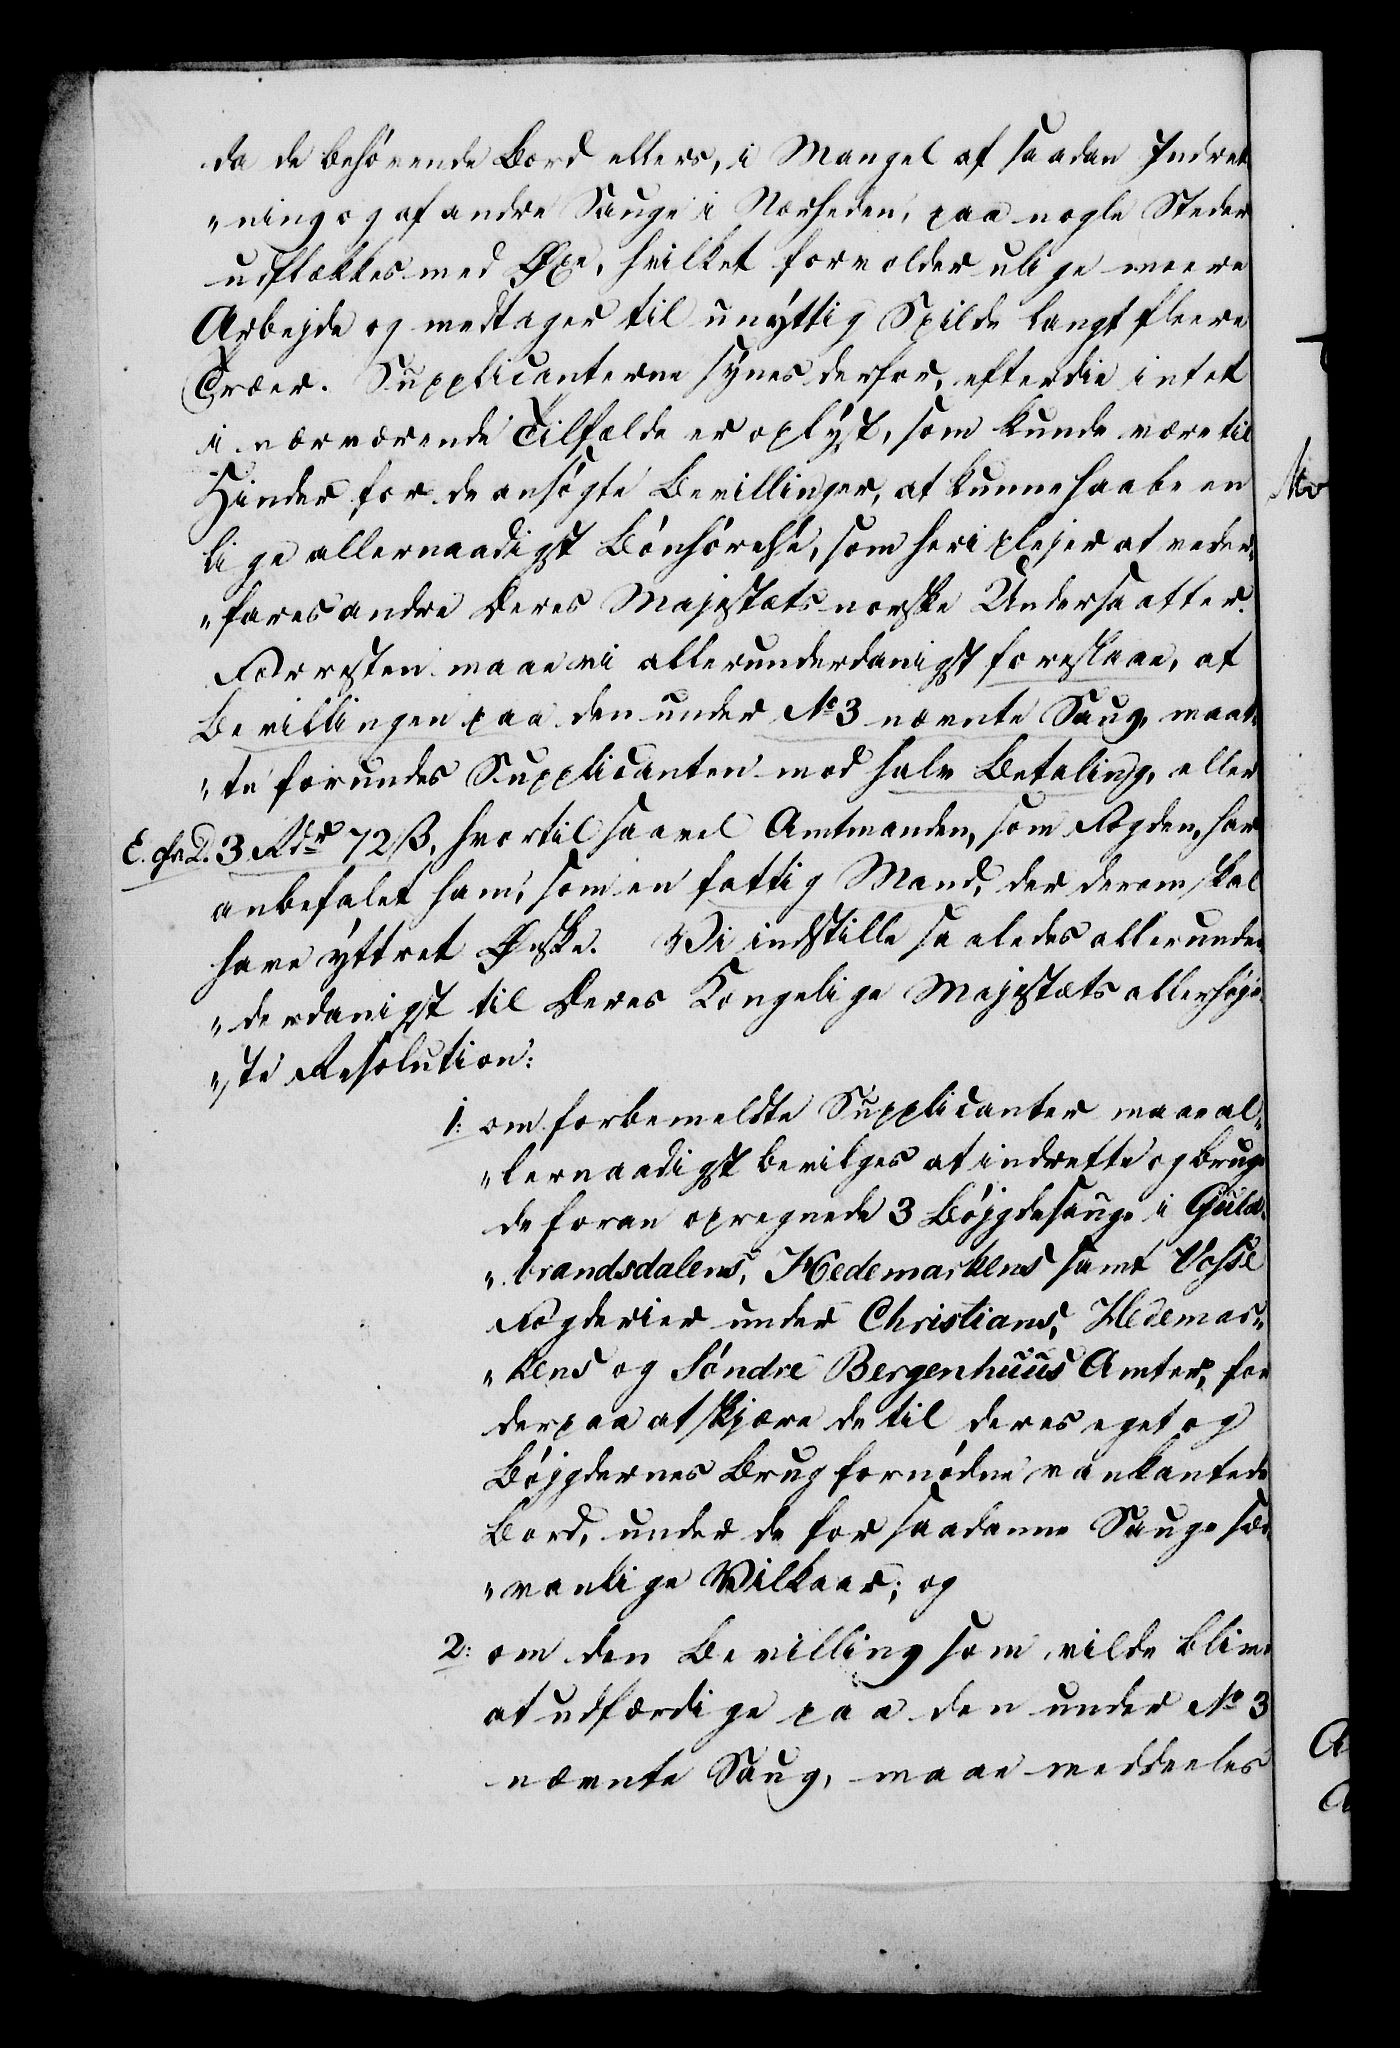 da de behövende Bord ellers, i Mangel af saadan Indret
„ning og af andre Sauge i Nærheden, paa nogle Steder
udflækkes med Øxe, hvilket forvolder ulige meere
Arbejde og medtager til unÿttig Spilde langt fleere
Træer. Supplicanterne sÿnes derfor, efterdie intet
i nærværende Tilfælde er oplÿst, som kunde være til
Hinder for de ansögte Bevillinger, at kunne haabe en
lige allernaadigst Bönhörelse, som heri plejer at veder„
„fares andre Deres Majestæts norske Undersaatter.
Forresten maae vi allerunderdanigst foreslaae, at
Bevillingen paa den under No 3 nævnte Saug, maat„
„te forundes Supplicanten mod halv Betaling, eller
3 Rdr 72 ß, hvortil saavel Amtmanden, som Fogden, har
anbefalet ham, som en fattig Mand, der derom skal
have ÿttret Ønske. Vi indstille saaledes allerunder
„derdanigst til Deres Kongelige Majestæts allerhöje„
„ste Resolution:
1: om forbemeldte Supplicanter maae al„
„lernaadigst bevilges at indrette og bruge
de foran opregnede 3 Böjgdesauge i Guld„
„brandsdalens, Hedemarkens samt Vosse
Fogderier under Christians, Hedemar„
„kens og Söndre Bergenhuus Amter, for
derpaa at skjære de til deres eget og
Böjgdernes Brug fornödne vankantede
Bord, under de for saadanne Sauge sæd
„vanlige Vilkaar; og
2: om den Bevilling som vilde blive
at udfærdige paa den under No 3
nævnte Saug, maae meddeeles